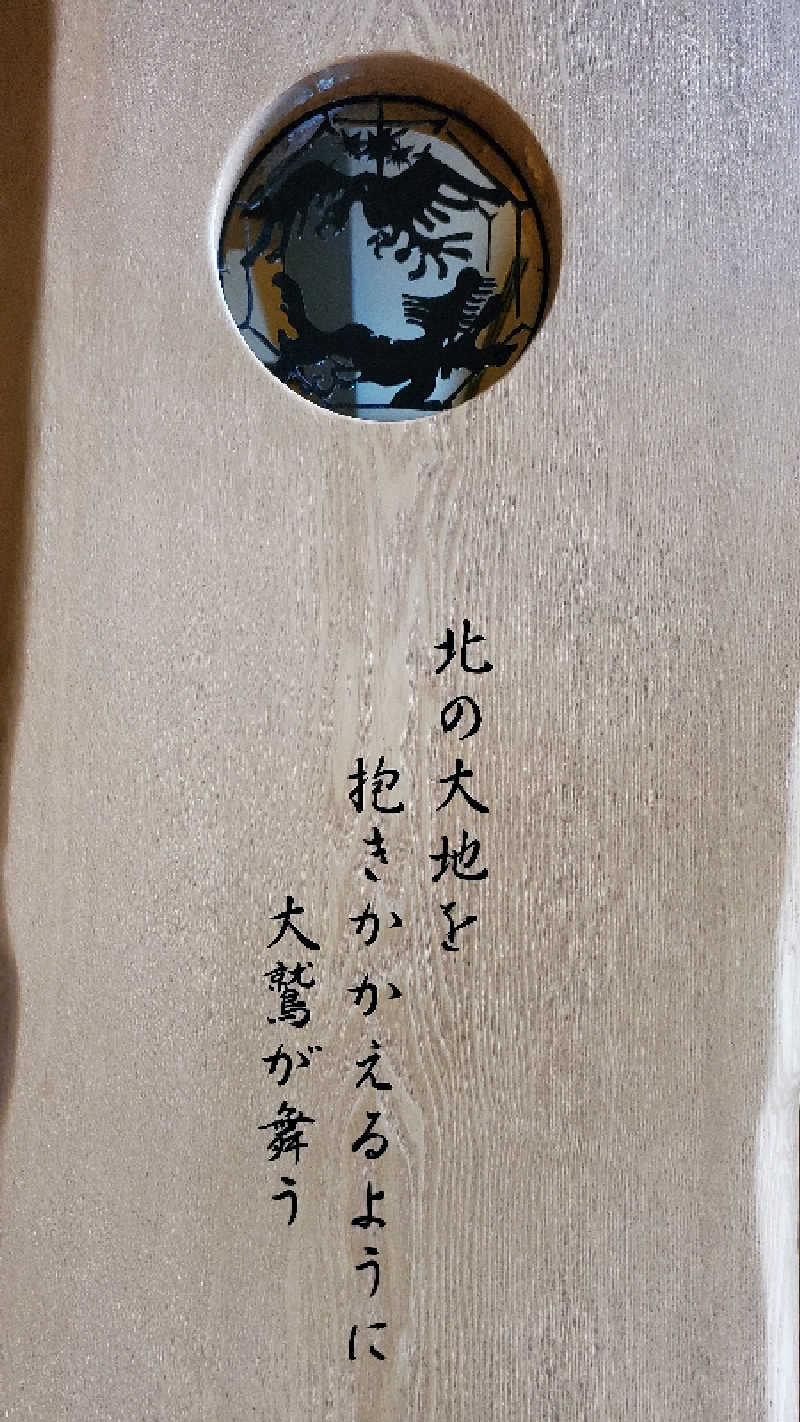 北の大地を
抱きかかえるように
大鷲が舞う